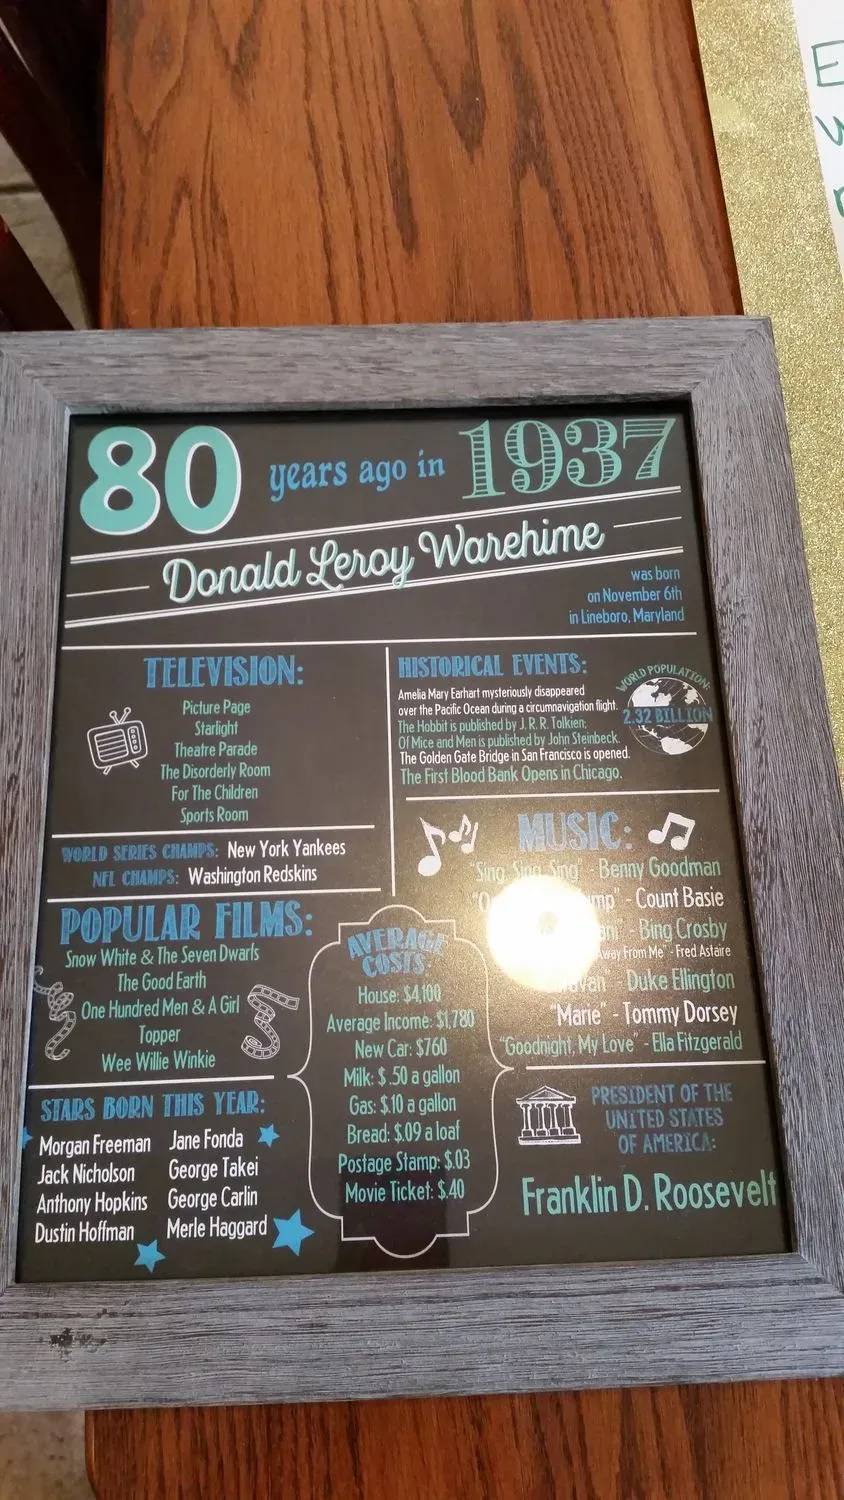 80 years ago in 1937
Donald Leroy Warehime
was born
on November 6th
in Lineboro, Maryland
TELEVISION:
Picture Page
Starlight
Theatre Parade
The Disorderly Room
For The Children
Sports Room
WORLD SERIES CHAMPS: New York Yankees
NFL CHAMPS: Washington Redskins
HISTORICAL EVENTS:
Amelia Mary Earhart mysteriously disappeared
over the Pacific Ocean during a circumnavigation flight.
The Hobbit is published by J. R. R. Tolkien;
Of Mice and Men is published by John Steinbeck.
The Golden Gate Bridge in San Francisco is opened.
The First Blood Bank Opens in Chicago.
WORLD POPULATION:
2.32 BILLION
MUSIC:
"Sing, Sing, Sing" - Benny Goodman
- Count Basie
- Bing Crosby
Away From Me" - Fred Astaire
- Duke Ellington
"Marie" - Tommy Dorsey
"Goodnight, My Love" - Ella Fitzgerald
POPULAR FILMS:
Snow White & The Seven Dwarfs
The Good Earth
One Hundred Men & A Girl
Topper
Wee Willie Winkie
AVERAGE
COSTS
House: $4,100
Average Income: $1,780
New Car: $760
Milk: $ .50 a gallon
Gas: $.10 a gallon
Bread: $.09 a loaf
Postage Stamp: $.03
Movie Ticket: $.40
STARS BORN THIS YEAR:
Morgan Freeman Jane Fonda
Jack Nicholson George Takei
Anthony Hopkins George Carlin
Dustin Hoffman Merle Haggard
PRESIDENT OF THE
UNITED STATES
OF AMERICA:
Franklin D. Roosevelt